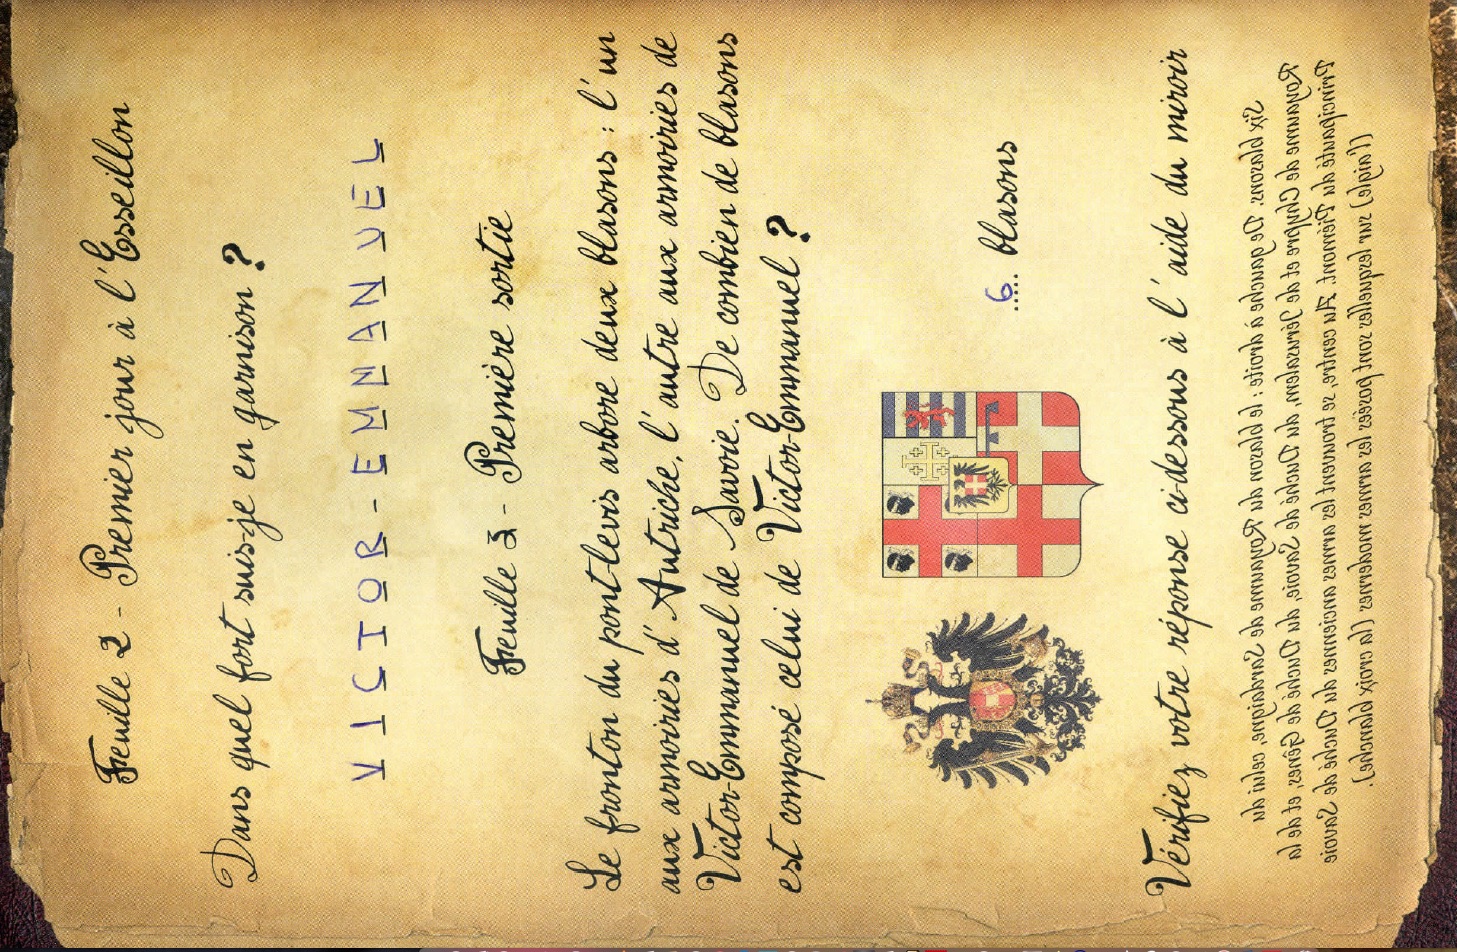 Feuille 2 - Premier jour à l'Esseillon
Dans quel fort suis-je en garnison ?
VICTOR-EMMANUEL
Feuille 3 - Première sortie
Le fronton du pont-levis arbore deux blasons : l'un
aux armoiries d'Autriche, l'autre aux armoiries de
Victor-Emmanuel de Savoie. De combien de blasons
est composé celui de Victor-Emmanuel ?
6 blasons
Vérifiez votre réponse ci-dessous à l'aide du miroir
Six blasons. De gauche à droite : le blason du Royaume de Sardaigne, celui du
Royaume de Chypre et de Jérusalem, du Duché de Savoie, du Duché de Gênes, et de la
Principauté du Piémont. Au centre, se trouvent les armes anciennes du Duché de Savoie
(l'aigle) sur lesquelles sont posées les armes modernes (la croix blanche).